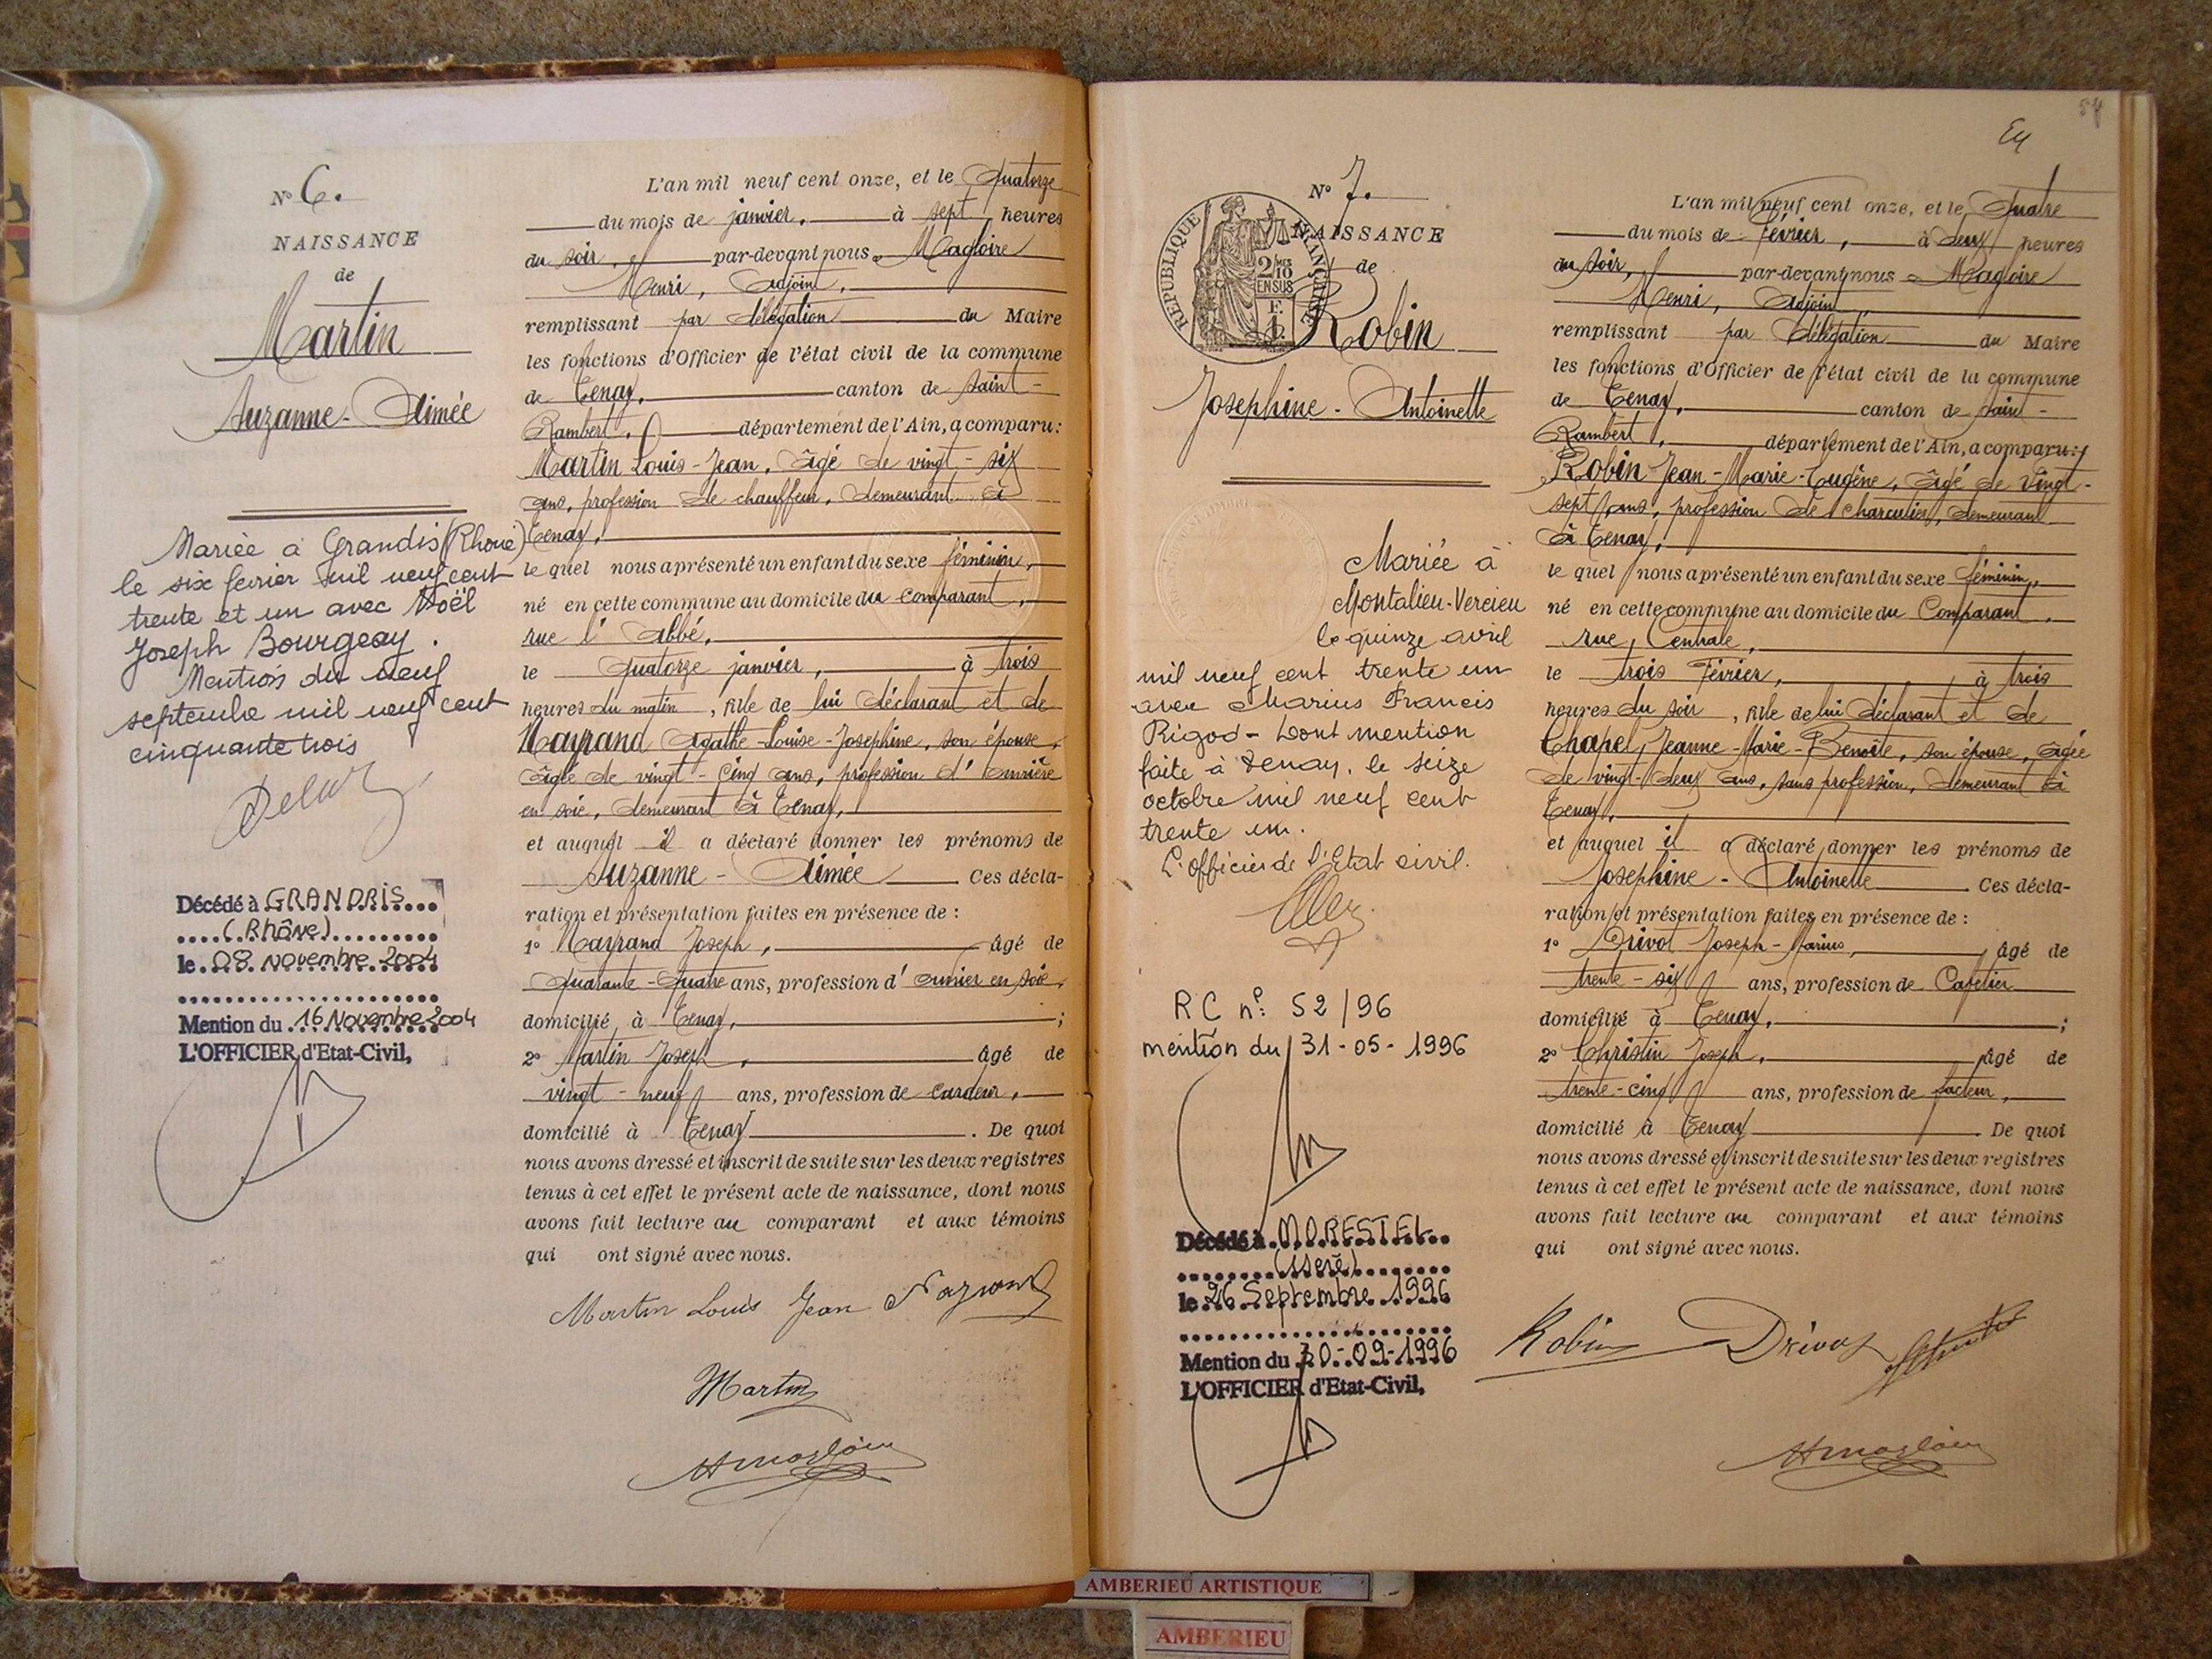 N° 6.
NAISSANCE
de
Martin
Suzanne-Aimée
Mariée à Grandis (Rhône)
le six fevrier mil neuf cent
trente et un avec Noël
Joseph Bourgeay.
Mention du neuf
septembre mil neuf cent
cinquante trois
Décédé à GRANDRIS
(Rhône)
le 08 novembre 2004
Mention du 16 Novembre 2004
L'OFFICIER d'Etat-Civil,
L'an mil neuf cent onze, et le Quatorze
du mois de janvier, à sept heures
du soir, par-devant nous Magloire
Henri, Adjoint,
remplissant par délégation du Maire
les fonctions d'Officier de l'état civil de la commune
de Tenay, canton de Saint-
Rambert, département de l'Ain, a comparu:
Martin Louis-Jean, âgé de vingt-six
ans, profession de chauffeur, demeurant à
Tenay,
le quel nous a présenté un enfant du sexe féminin,
né en cette commune au domicile du comparant,
rue l'Abbé,
le quatorze janvier, à trois
heures du matin, fille de lui déclarant et de
Mayrand Agathe-Louise-Josephine, son épouse,
âgée de vingt-cinq ans, profession d'ouvrière
en soie, demeurant à Tenay,
et auquel il a déclaré donner les prénoms de
Suzanne-Aimée Ces décla-
ration et présentation faites en présence de :
1° Mayrand Joseph, âgé de
quarante-quatre ans, profession d'ouvrier en soie,
domicilié à Tenay, ;
2° Martin Joseph, âgé de
vingt-neuf ans, profession de cardeur,
domicilié à Tenay. De quoi
nous avons dressé et inscrit de suite sur les deux registres
tenus à cet effet le présent acte de naissance, dont nous
avons fait lecture au comparant et aux témoins
qui ont signé avec nous.
Martin Louis Jean
Martin
Hmagloire
54
N° 7.
NAISSANCE
de
REPUBLIQUE FRANÇAISE
2/10
EN SUS
Robin
Josephine-Antoinette
Mariée à
Montalieu-Vercieu
le quinze avril
mil neuf cent trente un
avec Marius Francis
Rigod - Dont mention
faite à Tenay, le seize
octobre mil neuf cent
trente un.
L'officier de l'Etat civil.
RC n°: 52/96
mention du 31-05-1996
Décédé à MORESTEL
(Isere)
le 26 Septembre 1996
Mention du 30-09-1996
L'OFFICIER d'Etat-Civil,
L'an mil neuf cent onze, et le Quatre
du mois de Février, à deux heures
du soir, par-devant nous Magloire
Henri, Adjoint,
remplissant par délégation du Maire
les fonctions d'Officier de l'état civil de la commune
de Tenay, canton de Saint-
Rambert, département de l'Ain, a comparu:
Robin Jean-Marie-Eugène, âgé de vingt-
sept ans, profession de charcutier, demeurant
à Tenay,
le quel nous a présenté un enfant du sexe féminin,
né en cette commune au domicile du Comparant,
rue Centrale,
le trois Février, à trois
heures du soir, fille de lui déclarant et de
Chapel, Jeanne-Marie-Benoîte, son épouse, âgée
de vingt-deux ans, sans profession, demeurant à
Tenay,
et auquel il a déclaré donner les prénoms de
Josephine-Antoinette Ces décla-
ration et présentation faites en présence de :
1° Drivot Joseph-Marius, âgé de
trente-six ans, profession de Cafetier
domicilié à Tenay, ;
2° Christin Joseph, âgé de
trente-cinq ans, profession de facteur,
domicilié à Tenay. De quoi
nous avons dressé et inscrit de suite sur les deux registres
tenus à cet effet le présent acte de naissance, dont nous
avons fait lecture au comparant et aux témoins
qui ont signé avec nous.
Robin Drivot
Hmagloire
AMBERIEU ARTISTIQUE
AMBERIEU